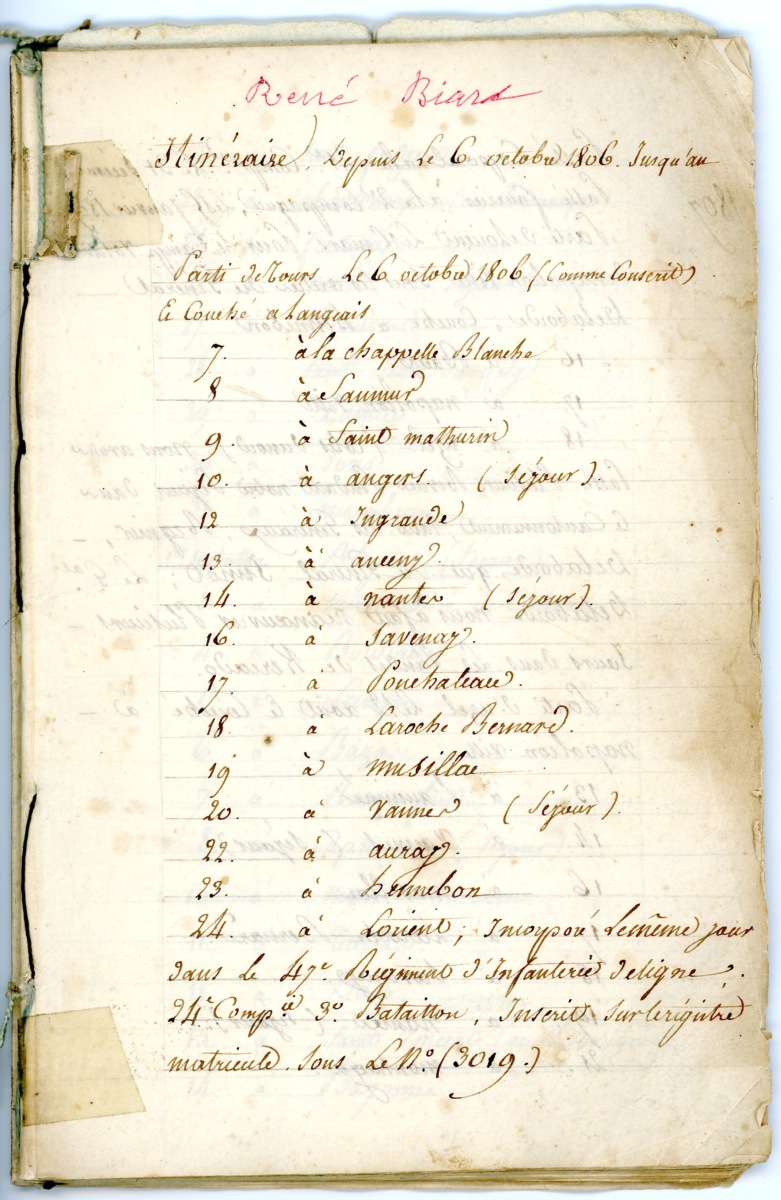 René Biard
Itinéraire, Depuis Le 6 octobre 1806. Jusqu'au
Parti de Tours Le 6 octobre 1806 (Comme Conscrit)
Et Couché a Langeais
7. à la chappelle Blanche
8 à Saumur
9. à Saint mathurin
10. à angers. (Séjour).
12 à Ingrande
13. à anceny.
14. à nantes (Séjour).
16. à Savenay.
17. à Ponchateau.
18. à Laroche Bernard.
19 à musillac
20. à Vannes (Séjour).
22. à auray.
23. à hennebon
24. à Lorient, Incorporé Le même jour
dans Le 47e. Régiment d'Infanterie de ligne.
24e. Compie 3e. Bataillon, Inscrit Sur le régistre
matricule. Sous Le No. (3019.)